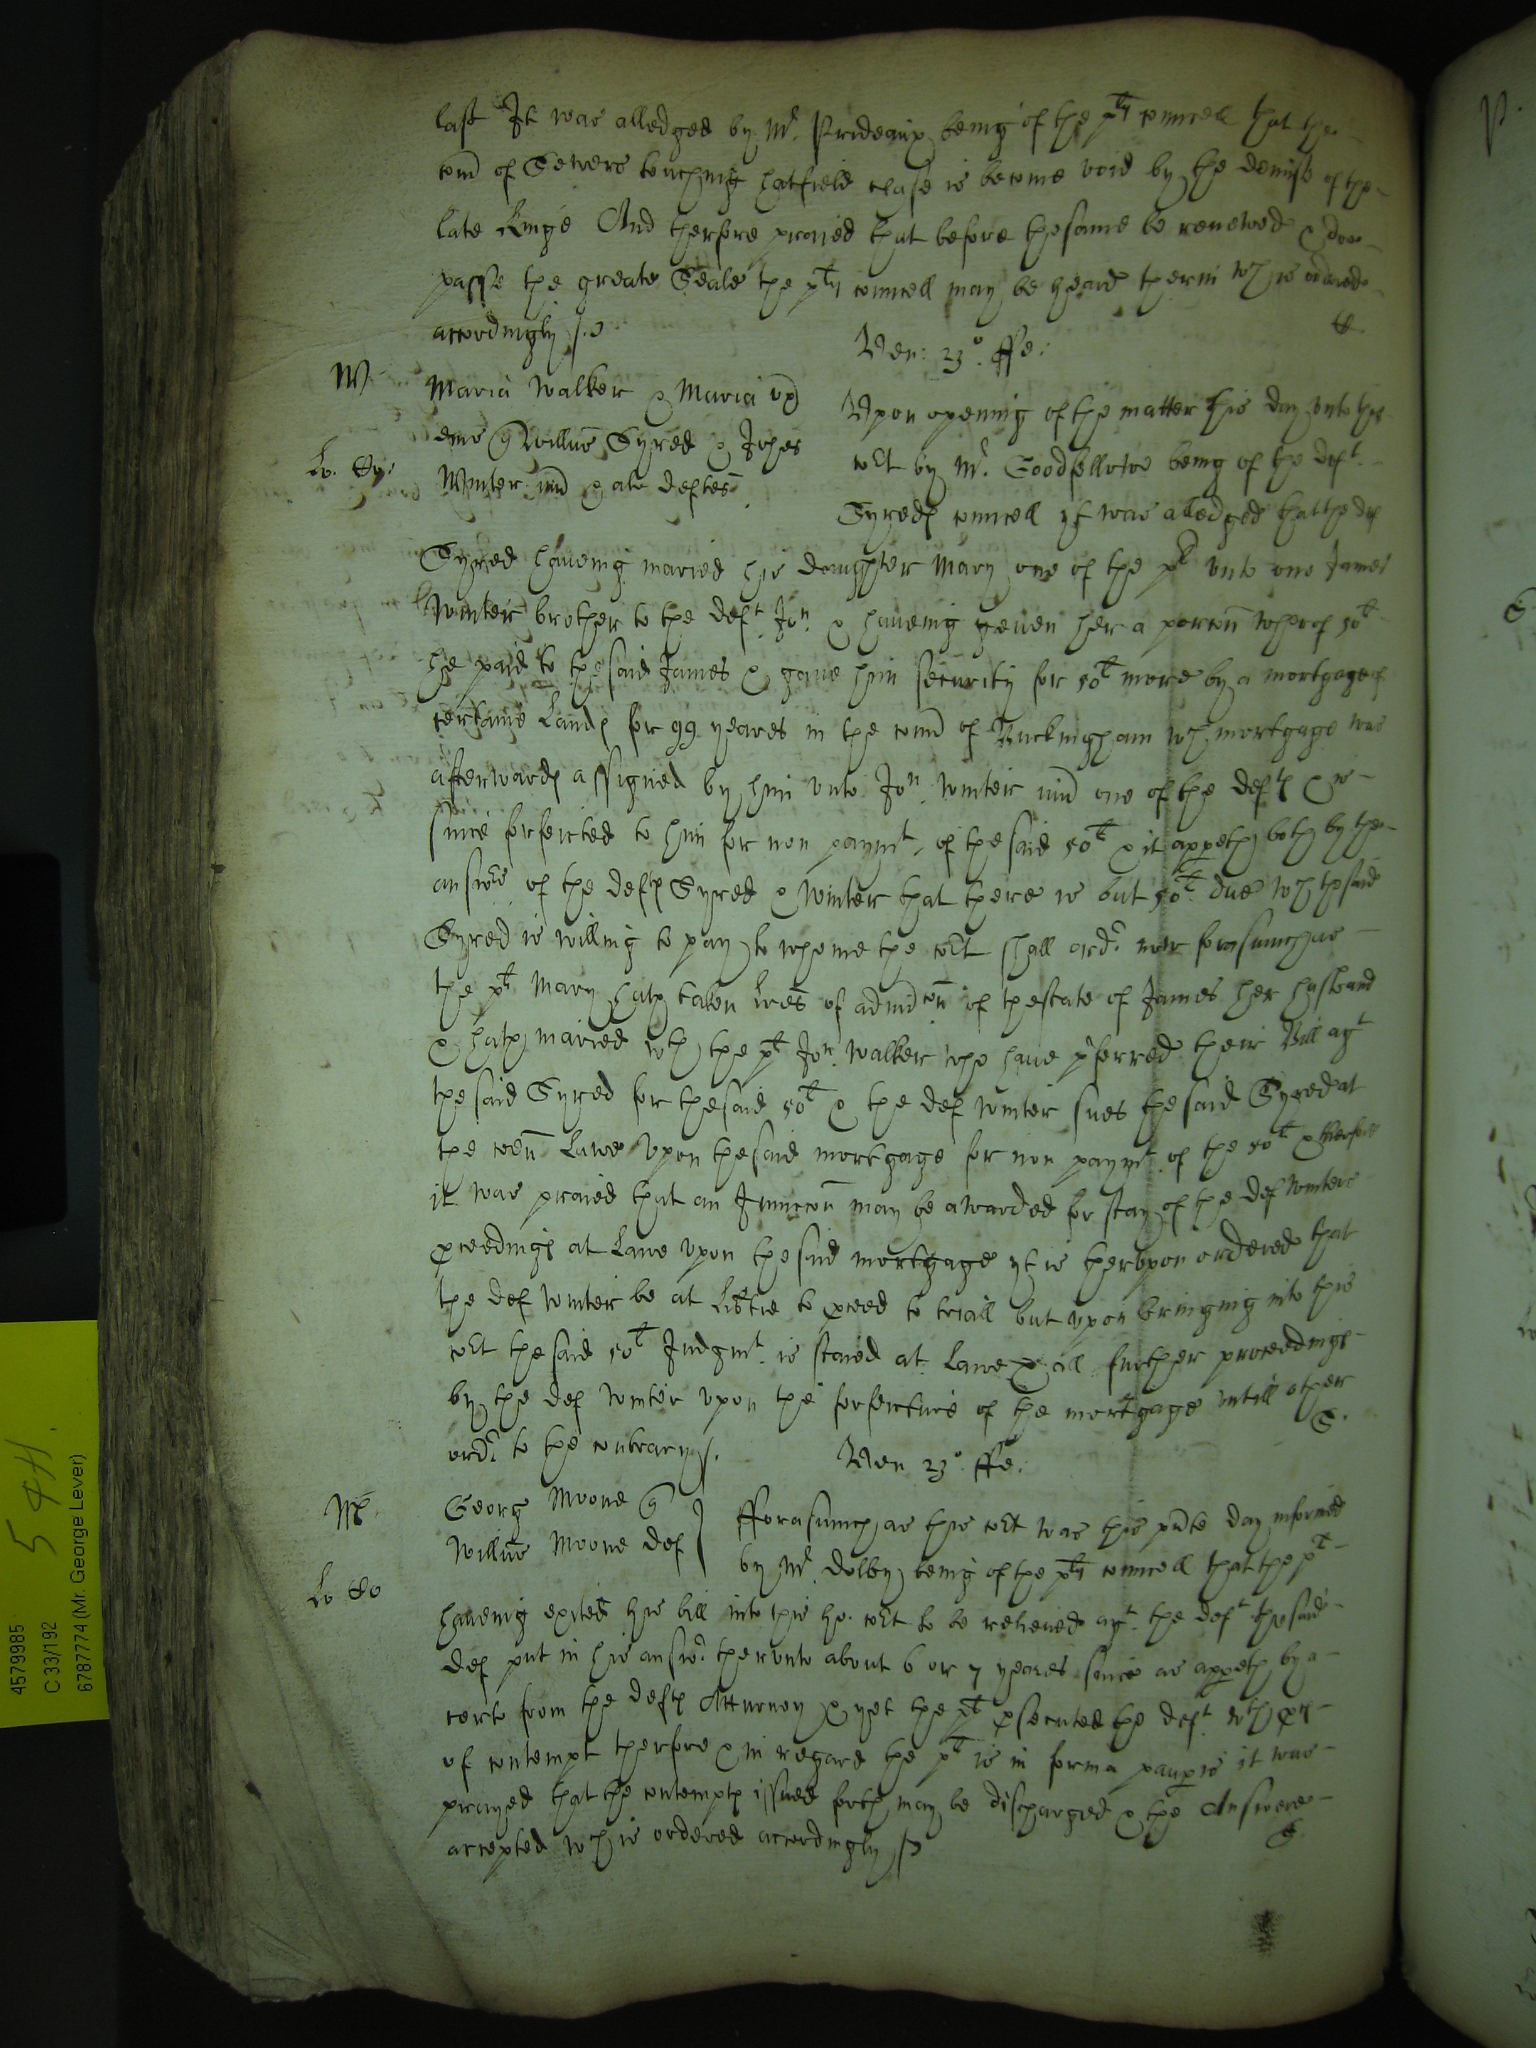 last It was alledged by Mr. Prideaux being of the plts councell that the
com̄ of Sewers touching hatfield chase is become void by the demise of the
late Kinge And therfore praied that before thesame be renewed & doe
passe the greate Seale the plts councell may be heard therin wch is ordered
accordingly
Ven: 23° ffe:
W
Maria Walker & Maria ux̄
eius q Willus Syred & Johes
Winter iun̄ & al̄ deftes
Lo. Sy:
Upon opening of the matter this day unto this
cort by Mr. Goodfellowe being of the deft.
Syreds councell yt was alledged that the def
Syred haueing maried his daughter Mary one of the plt unto one James
Winter brother to the deft Jon. & haueing geuen her a porc̄on wherof 50l
he paid to thesaid James & gaue him security for 50l more by a mortgage of
certaine Lands for 99 yeares in the com̄ of Buckingham wch mortgage was
afterwards assigned by him unto Jon. Winter iun̄ one of the defts & is
since forfeited to him for non paymt. of thesaid 50l & it appeth both by the
answrs of the defts Syred & Winter that there is but 50l due wch thesaid
Syred is willing to pay to whome the cort shall ordr now forasmuch as
the plt Mary hath taken Lres of admic̄on of thestate of James her husband
& hath maried wth the plt Jon. Walker who haue pferred their Bill agt
thesaid Syred for thesaid 50l & the def Winter sues thesaid Syred at
the com̄on Lawe upon thesaid mortgage for non paymt. of the 50l & therfore
it was praied that an Iniuncc̄on may be awarded for stay of the def Winters
pceedings at Lawe upon thesaid mortgage yt is therupon ordered that
the def Winter be at Libtie to pceed to triall but upon bringing into this
cort thesaid 50l Judgmt. is staied at Lawe & all further proceedings
by the def Winter upon the forfeiture of the mortgage untill other
ordr to the contrary
Ven 23° ffe:
M
George Moone q
Willus Moone def
Lo So
fforasmuch as this cort was this pn̄te day informed
by Mr. Dolby being of the plts councell that the plt
haueing exited his bill into this ho. cort to be releiued agt. the deft thesaid
def put in his answr. therunto about 6 or 7 yeares since as appeth by a
certe from the defts Atturney & yet the plt psecutes the deft. wth
of contempt therfore & in regard the plt is in forma paupis it was
prayed that the contempts issued forth may be discharged & the Answere
accepted wch is ordered accordingly
4579985
C 33/192
6787774 (Mr. George Lever)